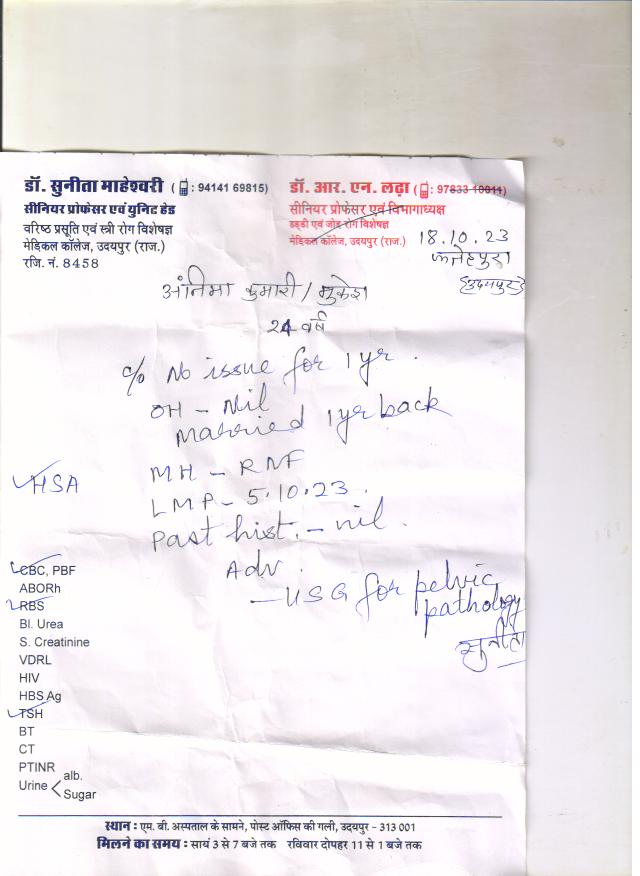 डॉ. सुनीता माहेश्वरी ( : 94141 69815)
सीनियर प्रोफेसर एवं युनिट हेड
वरिष्ठ प्रसूति एवं स्त्री रोग विशेषज्ञ
मेडिकल कॉलेज, उदयपुर (राज.)
रजि. नं. 8458
डॉ. आर. एन. लढ़ा ( : 97833 10011)
सीनियर प्रोफेसर एवं विभागाध्यक्ष
हड्डी एवं जोड़ रोग विशेषज्ञ
मेडिकल कॉलेज, उदयपुर (राज.)
18.10.23
फतेहपुरा
(उदयपुर)
अंतिमा कुमारी / मुकेश
24 वर्ष
c/o No issue for 1 yr.
OH - Nil
Married 1 yr back
MH - RNF
LMP - 5.10.23.
Past hist. - nil.
Adv.
- USG for pelvic
pathology
सुनीता
HSA
CBC, PBF
ABORh
RBS
Bl. Urea
S. Creatinine
VDRL
HIV
HBS Ag
TSH
BT
CT
PTINR
Urine < alb.
Sugar
स्थान : एम. बी. अस्पताल के सामने, पोस्ट ऑफिस की गली, उदयपुर - 313 001
मिलने का समय : सायं 3 से 7 बजे तक रविवार दोपहर 11 से 1 बजे तक